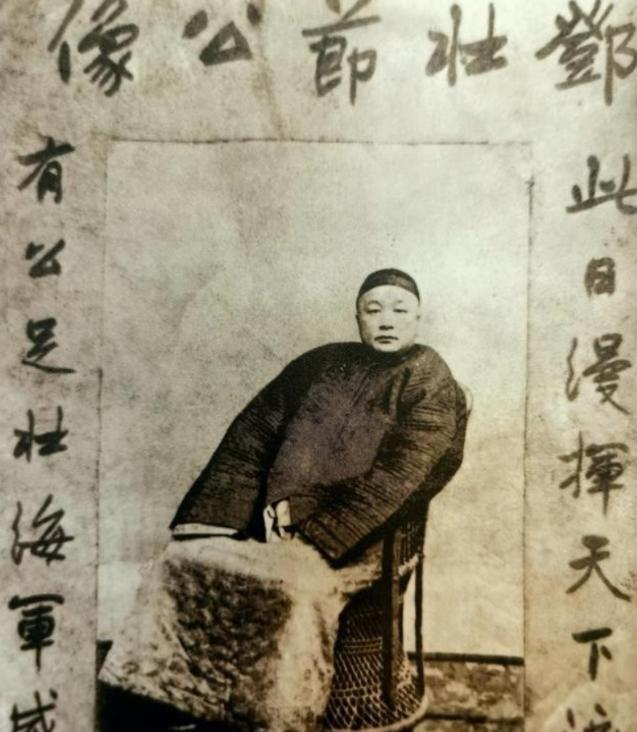 鄧壯節公像
此日漫揮天下
有公足壯海軍威